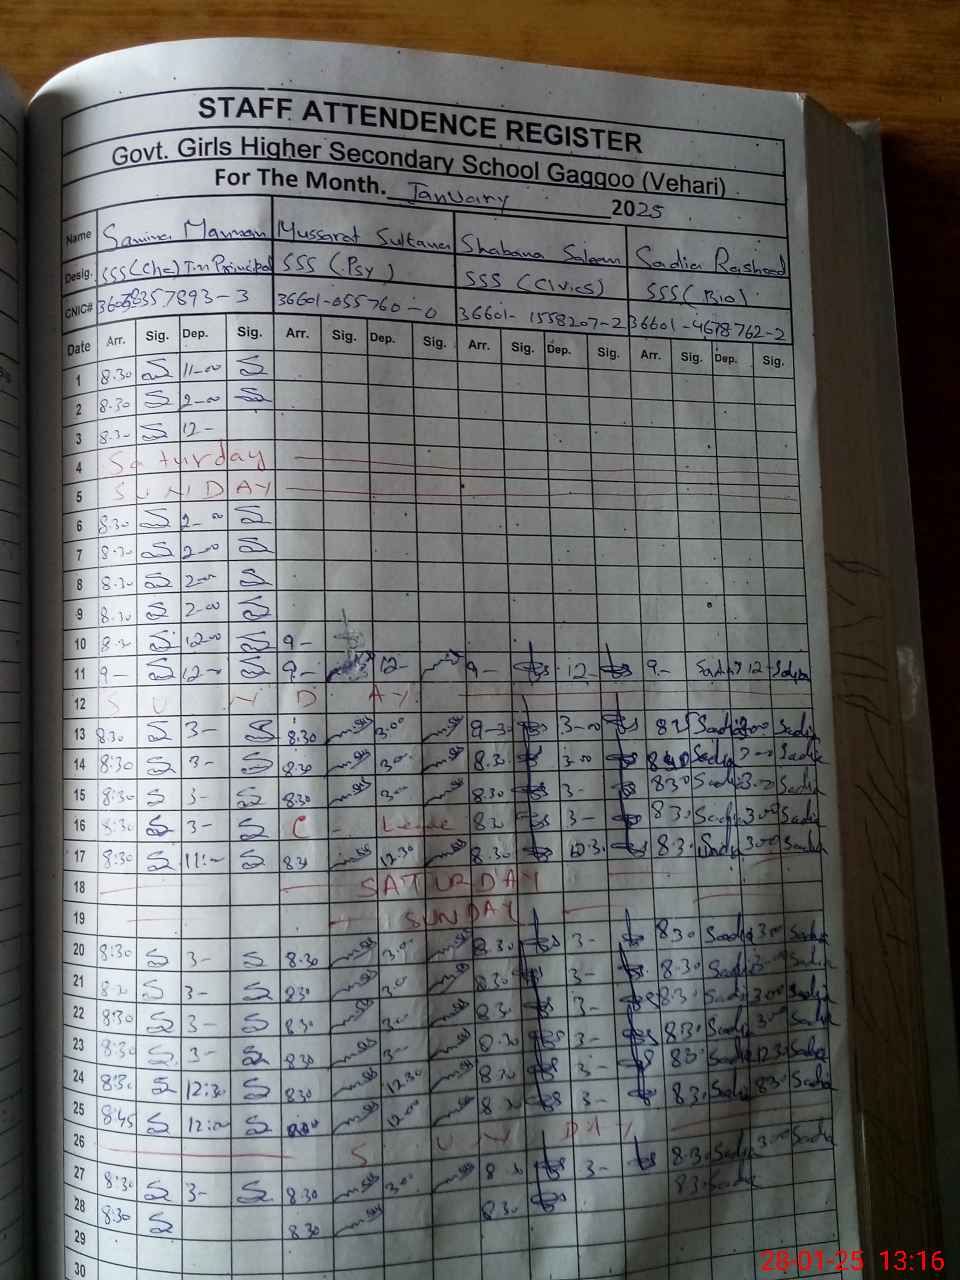 STAFF ATTENDENCE REGISTER
Govt. Girls Higher Secondary School Gaggoo (Vehari)
For The Month. January 2025
Name Mussarat Sultana Shabana Saleem Sadia Rasheed
Desig. SSS (Che) Principal SSS (Psy) SSS (Civics) SSS (Bio)
CNIC# 36601-055760-0 36601-1558207-2 36601-4678762-2
Date Arr. Sig. Dep. Sig. Arr. Sig. Dep. Sig. Arr. Sig. Dep. Sig. Arr. Sig. Dep. Sig.
1 8.30 11-00
2 8.30 2-00
3 8.30 12-
4 Saturday
5 SUNDAY
6 8.30 2-00
7 8.30 2-00
8 8.30 2-00
9 8.30 2-00
10 8.30 12-00 9-
11 9- 12- 9- 12- 9- 12- 9- Sadia 12- Sadia
12 SUNDAY
13 8.30 3- 8.30 3.00 3-00 Sadia 3.00 Sadia
14 8:30 3- 8.30 3.00 8.30 3.00 Sadia 3.00 Sadia
15 8:30 3- 8.30 3.00 8.30 3- 8.30 Sadia 3.00 Sadia
16 8:30 3- C - Leave 8.30 3- 8.30 Sadia 3.00 Sadia
17 8:30 11:00 8.30 12.30 8.30 12.30 8.30 Sadia 3.00 Sadia
18 SATURDAY
19 SUNDAY
20 8:30 3- 8.30 3.00 8.30 3- 8.30 Sadia 3.00 Sadia
21 8.30 3- 8.30 3.00 8.30 3- 8.30 Sadia 3.00 Sadia
22 8:30 3- 8.30 3.00 8.30 3- 8.30 Sadia 3.00 Sadia
23 8:30 3- 8.30 3- 8.30 3- 8.30 Sadia 3.00 Sadia
24 8:30 12:30 8.30 12.30 8.30 3- 8.30 Sadia 12.30 Sadia
25 8:45 12:00 12.00 8.30 3- 8.30 Sadia 8.30 Sadia
26 SUNDAY
27 8:30 3- 8.30 3.00 8.30 3- 8.30 Sadia 3.00 Sadia
28 8:30 8.30 8.30 8.30 Sadia
29
30
28-01-25 13:16